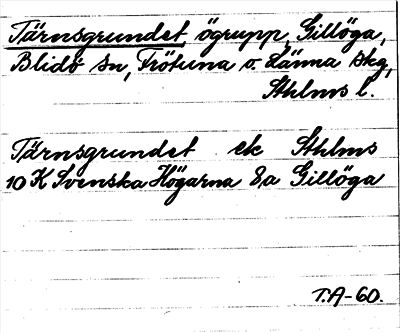 Tärnsgrundet, ögrupp, Gillöga,
Blidö sn, Frötuna o. Länna skg,
Sthlms l.
Tärnsgrundet ek Sthlms
10 K Svenska Högarna 8a Gillöga
T.A-60.